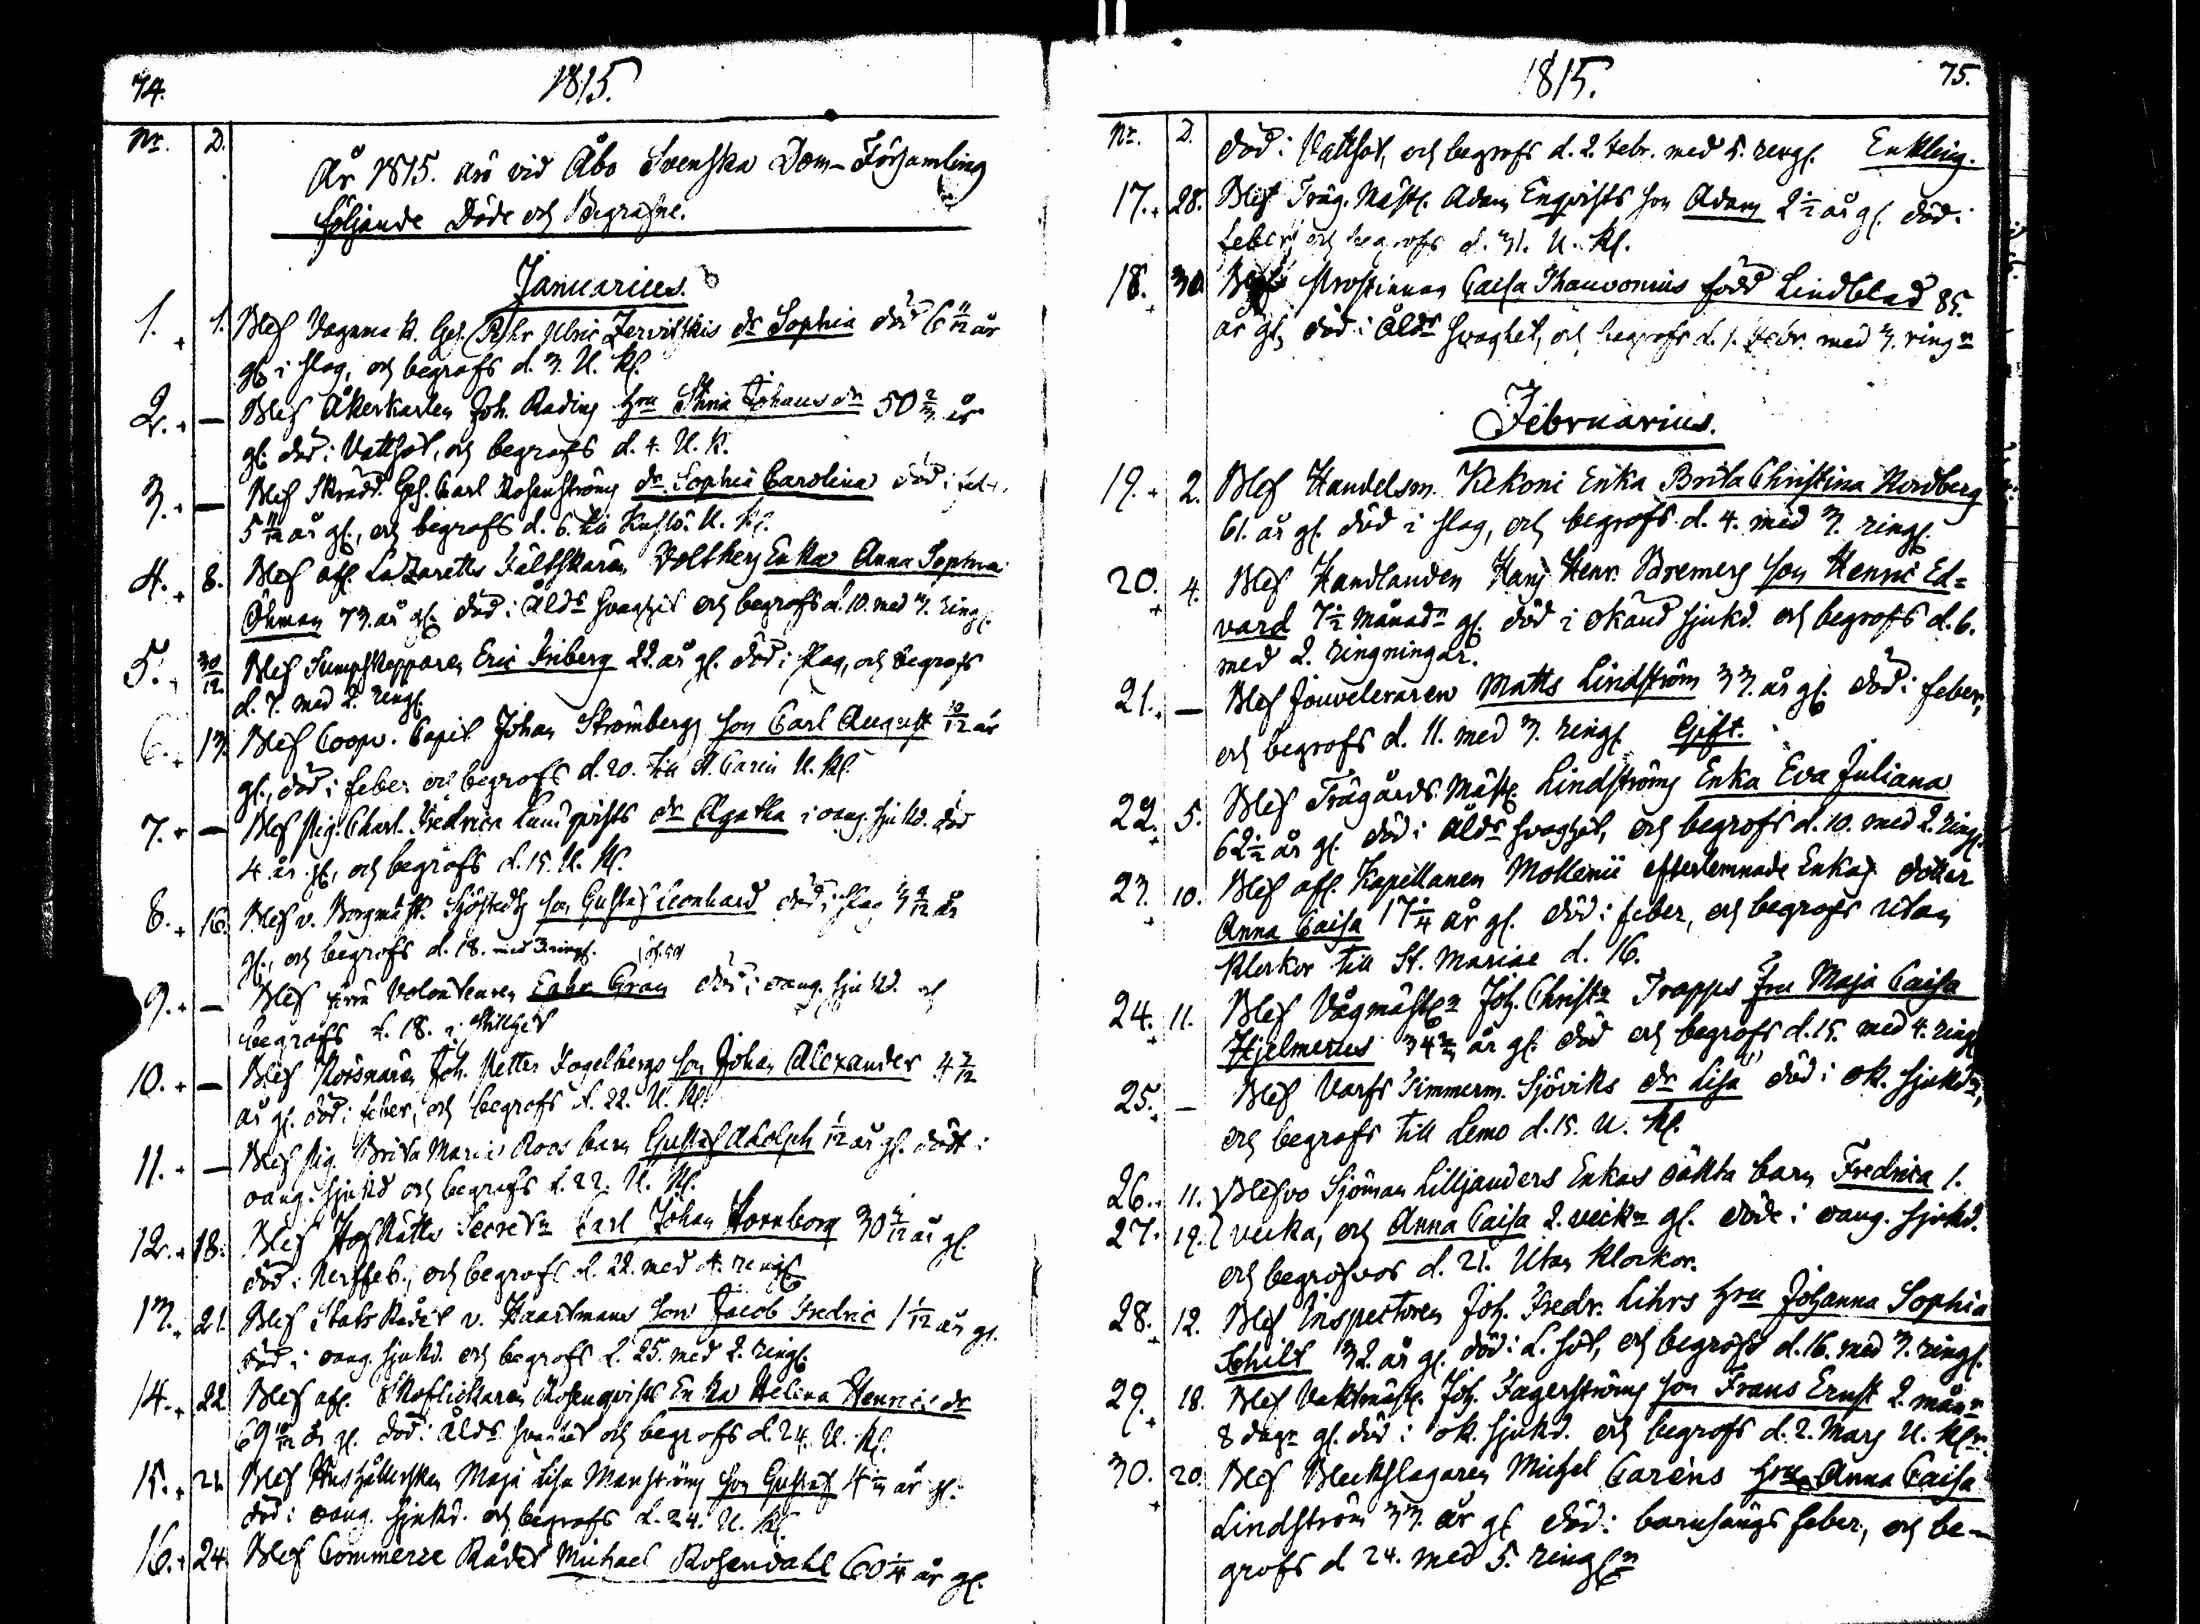 74.
1815.
Nr. D.
År 1815. äro vid Åbo Svenska Dom-Församling
följande Döde och Begrafne.
Januarius.
1. 1. Blef Vagnmak. Ges. Ulric dr Sophia död 6 11/12 år
gl. i slag, och begrofs d. 3. U. Kl.
2. — Blef Åkerkarlen Joh. Rading hru Stina Johansdr 50 2/3 år
gl. död i Vattsot, och begrofs d. 4. U. K.
3. — Blef Skrädd. Ges. Carl Rosenströms dr Sophia Carolina död i
5 11/12 år gl., och begrofs d. 6. U. Kl.
4. 8. Blef afl. Lazaretts Fältskären Enka Anna Sophia
Öhman 73. år gl. död i Ålds svaghet och begrofs d. 10. med 3. ringl.
5. 30/12 Blef Sumpskepparen Eric Friberg 22. år gl. död i slag, och begrofs
d. 7. med 2. ringl.
6. 13. Blef Coopv. Capit Johan Strömbergs son Carl August 10/12 år
gl., död i feber och begrofs d. 20. till St Carin U. Kl.
7. — Blef pig. Charl. Fredrica Lundqvists dr Agatha i oang. sjukd. död
4 år gl., och begrofs d. 15. U. Kl.
8. 16. Blef v. Borgmäst. Sjöstedts son Gustaf Leonhard död i slag 3 9/12 år
gl., och begrofs d. 18. med 3 ringl.
9. — Blef Volonteuren Gabr. Gran död i oang. sjukd. och
begrofs d. 18. i Stillhet
10. — Blef Körsnären Joh. Petter Fogelbergs son Johan Alexander 4 7/12
år gl. död i feber, och begrofs d. 22. U. Kl.
11. — Blef pig. Brita Maria Roos barn Gustaf Adolph 1/12 år gl. dödt i
oang. sjukd och begrofs d. 22. U. Kl.
12. 18. Blef HofRätts Secret. Carl Johan Hornborg 30 år gl.
död i Nerffeb., och begrofs d. 22. med 4. ringl.
13. 21. Blef StatsRådet v. Haartmans son Jacob Fredric 1 1/12 år gl.
död i oang. sjukd. och begrofs d. 25. med 2. ringl.
14. 22 Blef afl. Skoflickaren Rosenqvists Enka Helena Henricsdr
69 10/12 år gl. död i Ålds svaghet och begrofs d. 24. U. Kl.
15. 21. Blef Hushållerskan Maja Lisa Manströms son Gustaf år gl.
död i oang. sjukd. och begrofs d. 24. U. Kl.
16. 24. Blef Commerce Rådet Michael Rosendahl 60 1/4 år gl.
1815. 75.
Nr. D.
död i Vattsot, och begrofs d. 2. Febr. med 5. ringl. Enkling.
17. 28. Blef Träg. Mäst. Adam Enqvists son Adam 2 1/2 år gl. död i
feber, och begrofs d. 31. U. Kl.
18. 30. Blef Prostinnan Caisa Thauvonius född Lindblad 85.
år gl. död i Ålds svaghet, och begrofs d. 1. Febr. med 3. ringr
Februarius.
19. 2. Blef Handelsm. Kekoni Enka Brita Christina Nordberg
61. år gl. död i slag, och begrofs d. 4. med 3. ringl.
20. 4. Blef Handlanden Hans Henr. Bremers son Henric Ed=
vard 7 1/2 månadr gl. död i okänd sjukd. och begrofs d. 6.
med 2. ringningar.
21. — Blef Jouveleraren Matts Lindström 33. år gl. död i feber,
och begrofs d. 11. med 3. ringl. Gift.
22. 5. Blef Trägårds Mäst. Lindströms Enka Eva Juliana
62 1/2 år gl. död i Ålds svaghet, och begrofs d. 10. med 2. ringl.
23. 10. Blef afl. Kapellanen Mollenii efterlemnade Enkas dotter
Anna Caisa 17 1/4 år gl. död i feber, och begrofs utan
Klockor till St. Mariae d. 16.
24. 11. Blef Vågmäst. Joh. Christ. Trapps Fru Maja Caisa
Hjelmerus 34 år gl. död och begrofs d. 15. med 4. ringl
25. — Blef Varfs Timmerm. Sjöviks dr Lisa död i ok. sjukd.,
och begrofs till Lemo d. 15. U. Kl.
26. 11. Blefvo Sjöman Lilljanders Enkas oäkta barn Fredrica 1.
27. 19. vecka, och Anna Caisa 2. veckr gl. döde i oang. sjukd.
och begrofvos d. 21. Utan Klockor.
28. 12. Blef Inspectoren Joh. Fredr. Lihrs hru Johanna Sophia
Schilt 32. år gl. död i L. sot, och begrofs d. 16. med 3. ringl.
29. 18. Blef Vaktmäst. Joh. Fagerströms son Frans Ernst 2. mån.
8 dagr gl. död i ok. sjukd. och begrofs d. 2. Mars U. Klr.
30. 20. Blef Bleckslagaren Michel Caréns hru Anna Caisa
Lindström 33. år gl. död i barnsängs feber, och be-
grofs d 24. med 5. ringl.